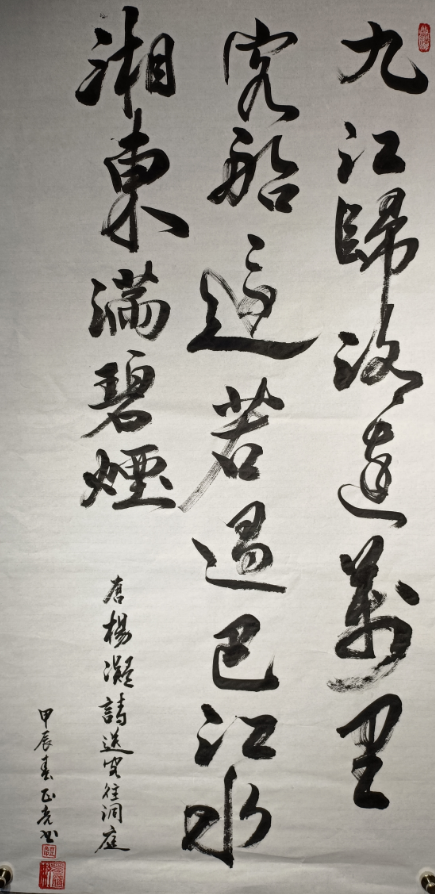 九江歸路遠萬里
客船還若過巴江水
湘東滿碧煙
唐楊凝詩送客往洞庭
甲辰春正书